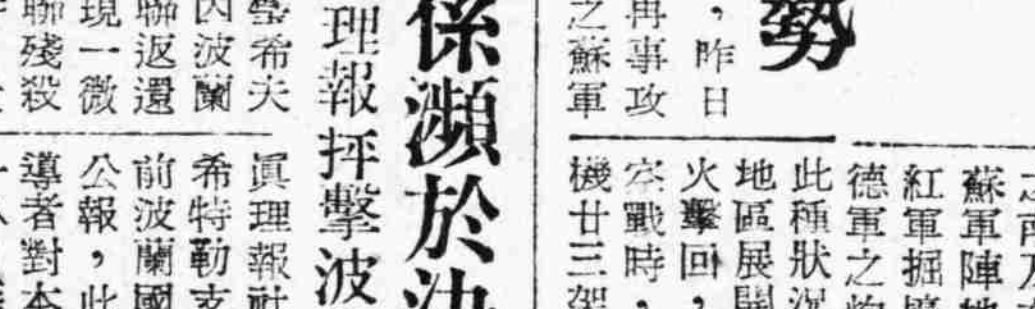 勢
，昨日
再事攻
之蘇軍
蘇軍陣地
紅軍掘
德軍之炮
此種狀況
地區展開
火擊回，
空戰時，
機廿三架
係瀕於決
理報抨擊波
希夫
因波蘭
聯返還
現一微
聯殘殺
眞理報社
希特勒支
前波蘭國
公報，此
導者對本